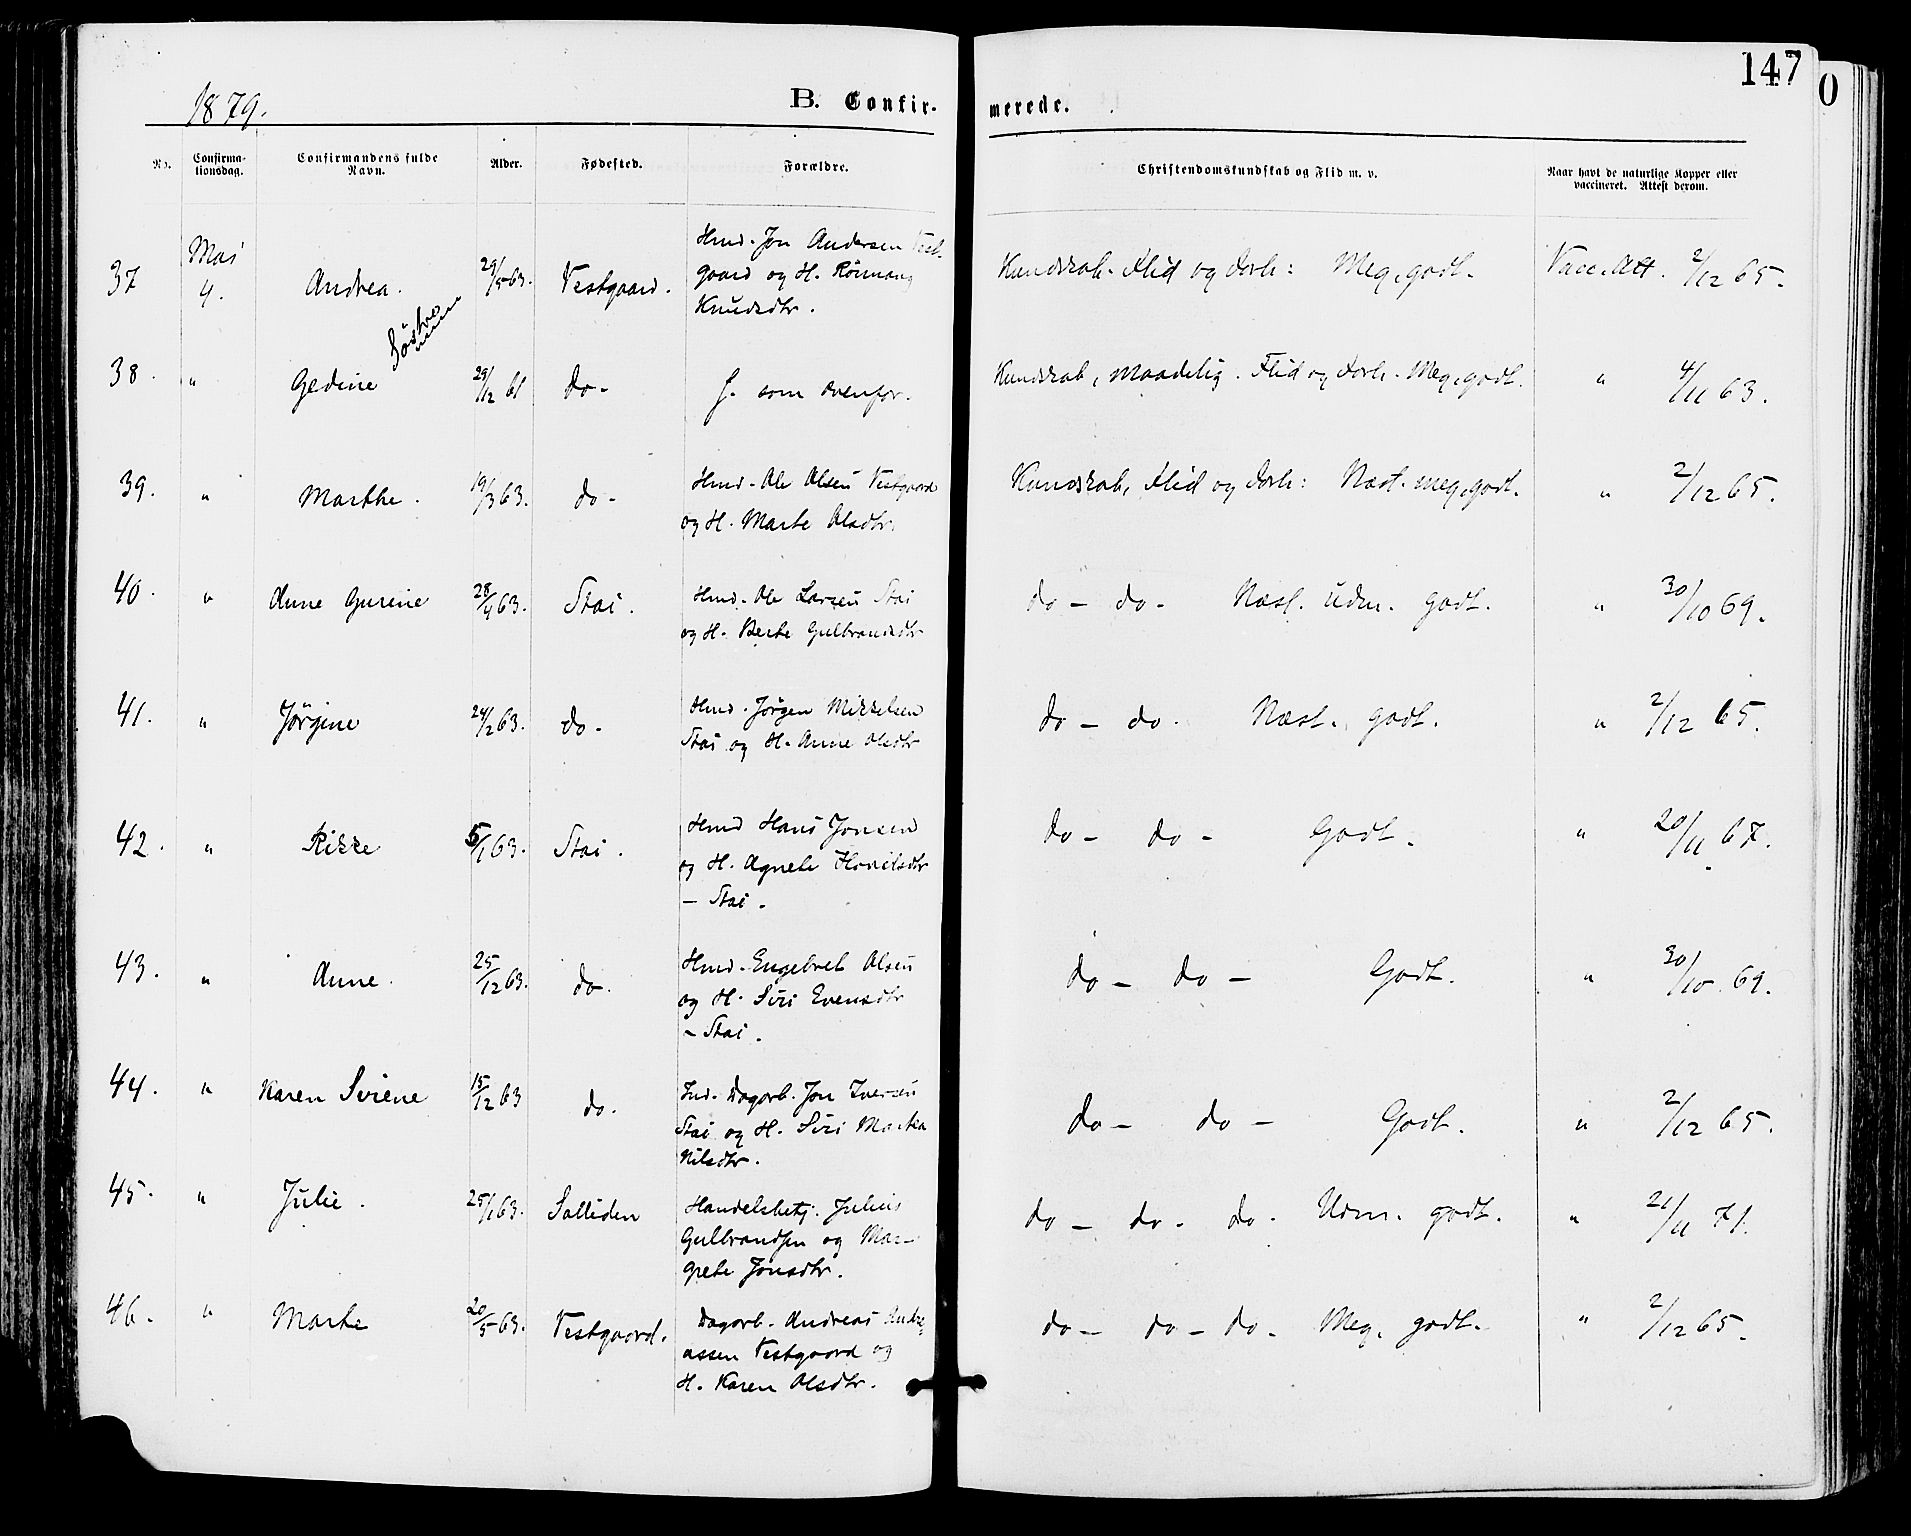 147
0
1879.
B. Confir-
merede.
No.
Confirma-
tionsdag.
Confirmandens fulde
Navn.
Alder.
Fødested.
Forældre.
Christendomskundskab og Flid m. v.
Naar havt de naturlige Kopper eller
vaccineret. Attest derom.
37 Mai 4. Andrea. 29/5 63. Vestgaard.
Hmd. Jon Andersen Vest-
gaard og H. Rönnaug
Knudsdtr.
Kundskab. Flid og Forh: Meg. godt. Vacc. Att. 2/12 65.
Söstre
38. " Gedine 29/12 61 do- f. som ovenfor. Kundskab, maadelig. Flid og Forh. Meg. godt. " 4/11 63.
39. " Marthe. 19/3 63. do-
Hmd. Ole Olsen Vestgaard
og H. Marte Olsdtr.
Kundskab, Flid og Forh: Næst. meg. godt. " 2/12 65.
40. " Anne Gurine 28/4 63. Stai.
Hmd. Ole Larsen Stai
og H. Berte Gulbrandsdtr
do - do - Næst. udm. godt. " 30/10 69.
41. " Jörgine 24/2 63. do-
Hmd. Jörgen Mikkelsen
Stai og H. Anne Olsdtr
do - do. Næst. godt. " 2/12 65.
42. " Rikke 5/1 63. Stai.
Hmd Hans Jonsen
og H. Agnete
- Stai.
do - do - Godt. " 20/11 67.
43. " Anne. 25/12 63. do.
Hmd. Engebret Olsen
og H. Siri Evensdtr
- Stai.
do - do - Godt. " 30/10 69.
44. " Karen Sirene 15/12 63 do.
Ind. Dagarb. Jon Iversen
Stai og H. Siri Martea
Nilsdtr.
do - do - Godt. " 2/12 65.
45. " Julie. 25/1 63. Solliden
Handelsbetj. Julius
Gulbrandsen og Mar-
grete Jonsdtr.
do - do - do. Udm. godt. " 21/11 71.
46. " Marte 20/5 63. Vestgaard.
Dagarb. Andreas Andre-
assen Vestgaard og
H. Karen Olsdtr.
do - do - do. Meg. godt. " 2/12 65.